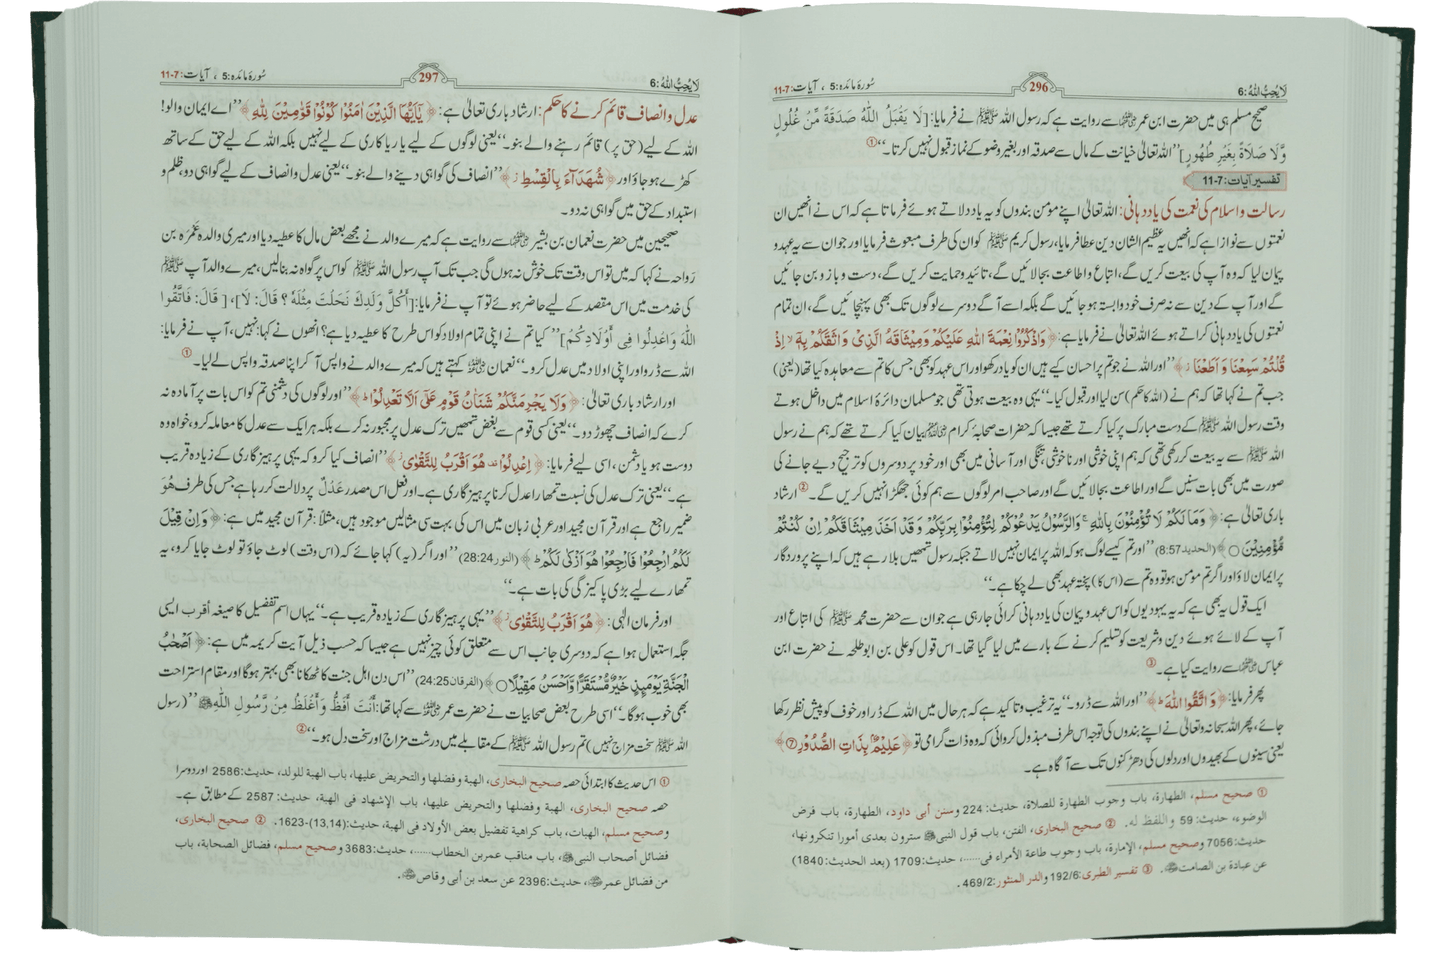 لَا يُحِبُّ اللهُ: 6
296
سُورۂ مائدہ: 5 ، آیات: 7-11
صحیح مسلم ہی میں حضرت ابن عمر رضی اللہ عنہما سے روایت ہے کہ رسول اللہ ﷺ نے فرمایا: [لَا يَقْبَلُ اللّٰهُ صَدَقَةً مِّنْ غُلُولٍ
وَّلَا صَلَاةً بِغَيْرِ طُهُورٍ] ’’اللہ تعالیٰ خیانت کے مال سے صدقہ اور بغیر وضو کے نماز قبول نہیں کرتا۔‘‘ ①
تفسیر آیات: 7-11
رسالت و اسلام کی نعمت کی یاددہانی: اللہ تعالیٰ اپنے مومن بندوں کو یہ یاد دلاتے ہوئے فرماتا ہے کہ اس نے انھیں ان
نعمتوں سے نوازا ہے کہ انھیں یہ عظیم الشان دین عطا فرمایا، رسول کریم ﷺ کو ان کی طرف مبعوث فرمایا اور جو ان سے یہ عہد و
پیمان لیا کہ وہ آپ کی بیعت کریں گے، اتباع و اطاعت بجا لائیں گے، تائید و حمایت کریں گے، دست و بازو بن جائیں
گے اور آپ کے دین سے نہ صرف خود وابستہ ہو جائیں گے بلکہ اسے آگے دوسرے لوگوں تک بھی پہنچائیں گے، ان تمام
نعمتوں کی یاد دہانی کراتے ہوئے اللہ تعالیٰ نے فرمایا ہے: ﴿وَاذْكُرُوْا نِعْمَةَ اللّٰهِ عَلَيْكُمْ وَمِيْثَاقَهُ الَّذِيْ وَاثَقَكُمْ بِهٖٓ ۙ اِذْ
قُلْتُمْ سَمِعْنَا وَاَطَعْنَا ۡ﴾ ’’اور اللہ نے جو تم پر احسان کیے ہیں ان کو یاد رکھو اور اس عہد کو بھی جس کا تم سے معاہدہ کیا تھا (یعنی)
جب تم نے کہا تھا کہ ہم نے (اللہ کا حکم) سن لیا اور قبول کیا۔‘‘ یہی وہ بیعت ہوتی تھی جو مسلمان دائرۂ اسلام میں داخل ہوتے
وقت رسول اللہ ﷺ کے دست مبارک پر کیا کرتے تھے جیسا کہ حضرات صحابۂ کرام رضی اللہ عنہم بیان کیا کرتے تھے کہ ہم نے رسول
اللہ ﷺ سے یہ بیعت کر رکھی تھی کہ ہم اپنی خوشی اور ناخوشی، تنگی اور آسانی میں بھی اور خود پر دوسروں کو ترجیح دیے جانے کی
صورت میں بھی بات سنیں گے اور اطاعت بجا لائیں گے اور صاحب امر لوگوں سے ہم کوئی جھگڑا نہیں کریں گے۔ ② ارشاد
باری تعالیٰ ہے: ﴿وَمَا لَكُمْ لَا تُؤْمِنُوْنَ بِاللّٰهِ ۚ وَالرَّسُوْلُ يَدْعُوْكُمْ لِتُؤْمِنُوْا بِرَبِّكُمْ وَقَدْ اَخَذَ مِيْثَاقَكُمْ اِنْ كُنْتُمْ
مُّؤْمِنِيْنَ ○﴾ (الحديد 8:57) ’’اور تم کیسے لوگ ہو کہ اللہ پر ایمان نہیں لاتے جبکہ رسول تمھیں بلا رہے ہیں کہ اپنے پروردگار
پر ایمان لاؤ اور اگر تم مومن ہو تو وہ تم سے (اس کا) پختہ عہد بھی لے چکا ہے۔‘‘
ایک قول یہ بھی ہے کہ یہ یہودیوں کو اس عہد و پیمان کی یاد دہانی کرائی جا رہی ہے جو ان سے حضرت محمد ﷺ کی اتباع اور
آپ کے لائے ہوئے دین و شریعت کو تسلیم کرنے کے بارے میں لیا گیا تھا۔ اس قول کو علی بن ابو طلحہ نے حضرت ابن
عباس رضی اللہ عنہما سے روایت کیا ہے۔ ③
پھر فرمایا: ﴿وَاتَّقُوا اللّٰهَ ۭ﴾ ’’اور اللہ سے ڈرو۔‘‘ یہ ترغیب و تاکید ہے کہ ہر حال میں اللہ کے ڈر اور خوف کو پیش نظر رکھا
جائے، پھر اللہ سبحانہ و تعالیٰ نے اپنے بندوں کی توجہ اس طرف مبذول کروائی کہ وہ ذات گرامی تو ﴿عَلِيْمٌۢ بِذَاتِ الصُّدُوْرِ ⑦﴾
یعنی سینوں کے بھیدوں اور دلوں کی دھڑکنوں تک سے آگاہ ہے۔
① صحيح مسلم، الطهارة، باب وجوب الطهارة للصلاة، حديث: 224 وسنن أبي داود، الطهارة، باب فرض
الوضوء، حديث: 59 واللفظ له. ② صحيح البخاري، الفتن، باب قول النبي ﷺ سترون بعدي أمورا تنكرونها،
حديث: 7056 وصحيح مسلم، الإمارة، باب وجوب طاعة الأمراء في......، حديث: 1709 (بعد الحديث: 1840)
عن عبادة بن الصامت. ③ تفسير الطبري: 192/6 والدر المنثور: 469/2.
لَا يُحِبُّ اللهُ: 6
297
سُورۂ مائدہ: 5 ، آیات: 7-11
عدل و انصاف قائم کرنے کا حکم: ارشاد باری تعالیٰ ہے: ﴿يٰٓاَيُّهَا الَّذِيْنَ اٰمَنُوْا كُوْنُوْا قَوّٰمِيْنَ لِلّٰهِ﴾ ’’اے ایمان والو!
اللہ کے لیے (حق پر) قائم رہنے والے بنو۔‘‘ یعنی لوگوں کے لیے یا ریا کاری کے لیے نہیں بلکہ اللہ کے لیے حق کے ساتھ
کھڑے ہو جاؤ اور ﴿شُهَدَآءَ بِالْقِسْطِ ۡ﴾ ’’انصاف کی گواہی دینے والے بنو۔‘‘ یعنی عدل و انصاف کے لیے گواہی دو، ظلم و
استبداد کے حق میں گواہی نہ دو۔
صحیحین میں حضرت نعمان بن بشیر رضی اللہ عنہما سے روایت ہے کہ میرے والد نے مجھے بعض مال کا عطیہ دیا اور میری والدہ عَمْرَہ بن
رواحہ نے کہا کہ میں تو اس وقت تک خوش نہ ہوں گی جب تک آپ رسول اللہ ﷺ کو اس پر گواہ نہ بنا لیں، میرے والد آپ ﷺ
کی خدمت میں اس مقصد کے لیے حاضر ہوئے تو آپ نے فرمایا: [أَكُلَّ وَلَدِكَ نَحَلْتَ مِثْلَهُ؟ قَالَ: لَا]، [قَالَ: فَاتَّقُوا
اللّٰهَ وَاعْدِلُوا فِي أَوْلَادِكُمْ] ’’کیا تم نے اپنی تمام اولاد کو اس طرح کا عطیہ دیا ہے؟ انھوں نے کہا: نہیں، آپ نے فرمایا:
اللہ سے ڈرو اور اپنی اولاد میں عدل کرو۔‘‘ نعمان رضی اللہ عنہ کہتے ہیں کہ میرے والد نے واپس آ کر اپنا صدقہ واپس لے لیا۔ ①
اور ارشاد باری تعالیٰ: ﴿وَلَا يَجْرِمَنَّكُمْ شَنَاٰنُ قَوْمٍ عَلٰٓى اَلَّا تَعْدِلُوْا ۭ﴾ ’’اور لوگوں کی دشمنی تم کو اس بات پر آمادہ نہ
کرے کہ انصاف چھوڑ دو۔‘‘ یعنی کسی قوم سے بغض تمھیں ترک عدل پر مجبور نہ کرے بلکہ ہر ایک سے عدل کا معاملہ کرو، خواہ وہ
دوست ہو یا دشمن، اسی لیے فرمایا: ﴿اِعْدِلُوْا ۣ هُوَ اَقْرَبُ لِلتَّقْوٰى ۡ﴾ ’’انصاف کیا کرو کہ یہی پرہیز گاری کے زیادہ قریب
ہے۔‘‘ یعنی ترک عدل کی نسبت تمھارا عدل کرنا پرہیز گاری ہے۔ اور فعل اس مصدر عَدْلٌ پر دلالت کر رہا ہے جس کی طرف هُوَ
ضمیر راجع ہے اور قرآن مجید اور عربی زبان میں اس کی بہت سی مثالیں موجود ہیں، مثلاً: قرآن مجید میں ہے: ﴿وَاِنْ قِيْلَ
لَكُمُ ارْجِعُوْا فَارْجِعُوْا هُوَ اَزْكٰى لَكُمْ ۭ﴾ (النور 28:24) ’’اور اگر (یہ) کہا جائے کہ (اس وقت) لوٹ جاؤ تو لوٹ جایا کرو، یہ
تمھارے لیے بڑی پاکیزگی کی بات ہے۔‘‘
اور فرمان الٰہی: ﴿هُوَ اَقْرَبُ لِلتَّقْوٰى ۡ﴾ ’’یہی پرہیز گاری کے زیادہ قریب ہے۔‘‘ یہاں اسم تفضیل کا صیغہ أقرب ایسی
جگہ استعمال ہوا ہے کہ دوسری جانب اس سے متعلق کوئی چیز نہیں ہے جیسا کہ حسب ذیل آیت کریمہ میں ہے: ﴿اَصْحٰبُ
الْجَنَّةِ يَوْمَئِذٍ خَيْرٌ مُّسْتَقَرًّا وَّاَحْسَنُ مَقِيْلًا ○﴾ (الفرقان 24:25) ’’اس دن اہل جنت کا ٹھکانا بھی بہتر ہو گا اور مقام استراحت
بھی خوب ہو گا۔‘‘ اسی طرح بعض صحابیات نے حضرت عمر رضی اللہ عنہ سے کہا تھا: أَنْتَ أَفَظُّ وَأَغْلَظُ مِنْ رَّسُولِ اللّٰهِ ﷺ ’’(رسول
اللہ ﷺ سخت مزاج نہیں) تم رسول اللہ ﷺ کے مقابلے میں درشت مزاج اور سخت دل ہو۔‘‘ ②
① اس حدیث کا ابتدائی حصہ صحيح البخاري، الهبة وفضلها والتحريض عليها، باب الهبة للولد، حديث: 2586 اور دوسرا
حصہ صحيح البخاري، الهبة وفضلها والتحريض عليها، باب الإشهاد في الهبة، حديث: 2587 کے مطابق ہے۔
وصحيح مسلم، الهبات، باب كراهية تفضيل بعض الأولاد في الهبة، حديث: (13,14)-1623. ② صحيح البخاري،
فضائل أصحاب النبي ﷺ، باب مناقب عمر بن الخطاب......، حديث: 3683 وصحيح مسلم، فضائل الصحابة، باب
من فضائل عمر، حديث: 2396 عن سعد بن أبي وقاص.